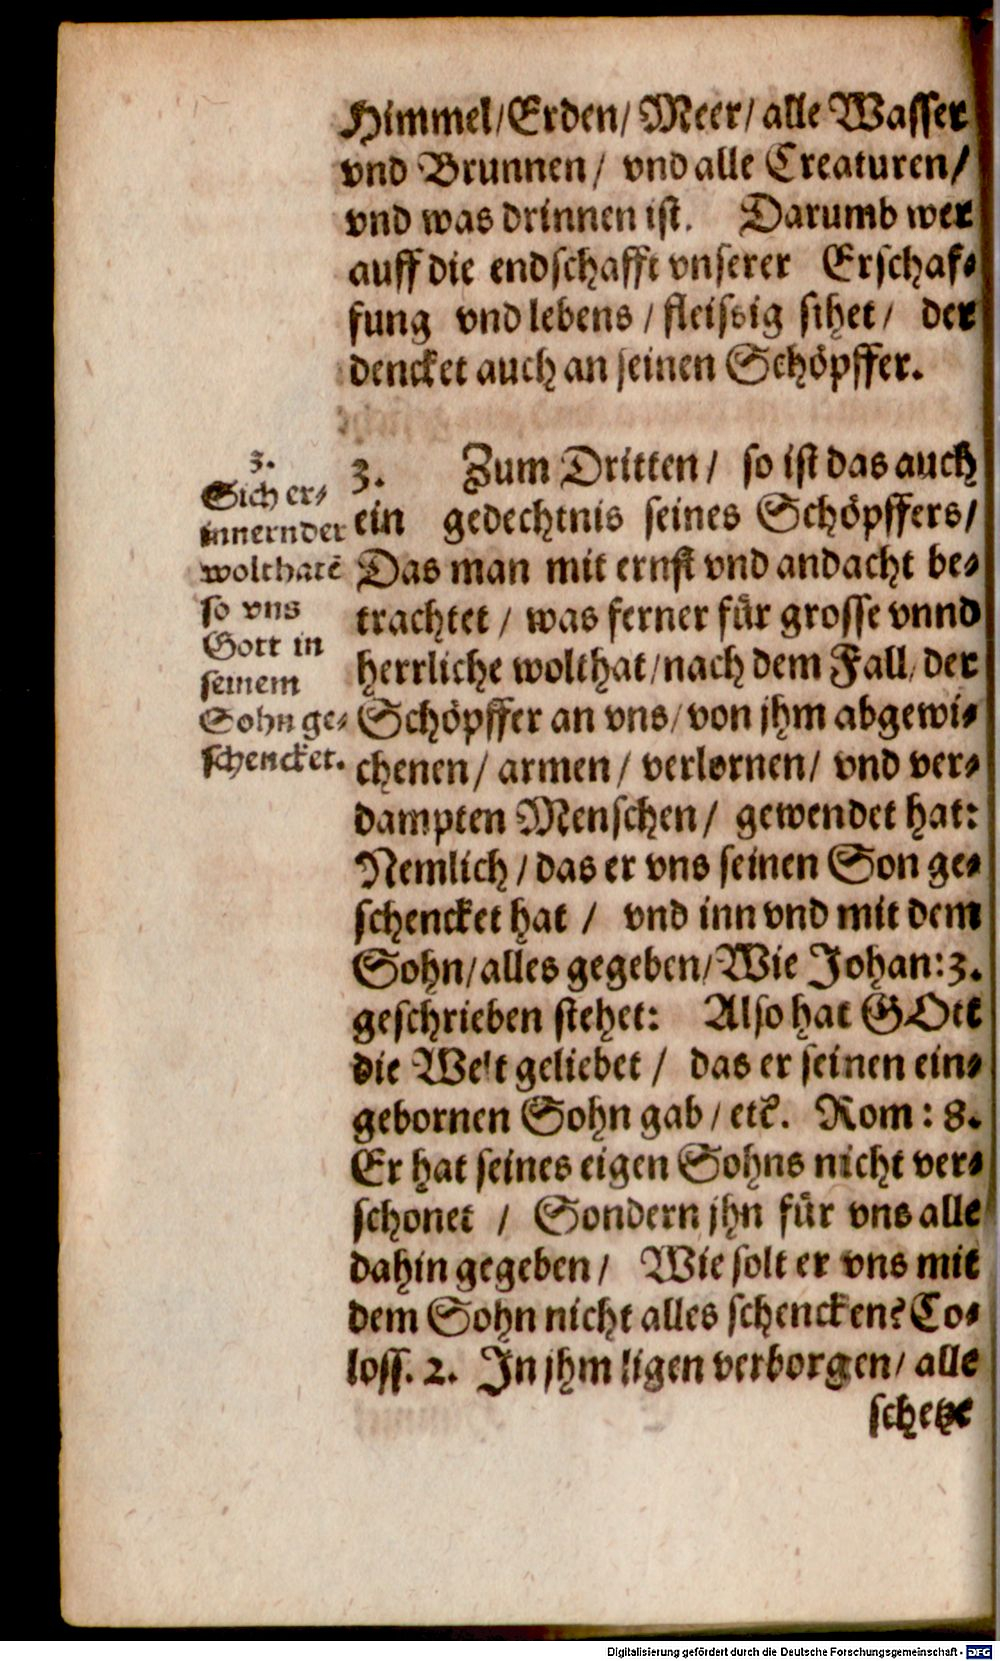 Himmel/Erden/ Meer/ alle Wasser
vnd Brunnen/ vnd alle Creaturen/
vnd was drinnen ist. Darumb wer
auff die endschafft vnserer Erschaf-
fung vnd lebens / fleissig sihet/ der
dencket auch an seinen Schöpffer.
3. Zum Dritten/ so ist das auch
ein gedechtnis seines Schöpffers/
Das man mit ernst vnd andacht be-
trachtet / was ferner für grosse vnnd
herrliche wolthat/nach dem Fall/ der
Schöpffer an vns/von jhm abgewi-
chenen/ armen/ verlornen/ vnd ver-
dampten Menschen/ gewendet hat:
Nemlich/das er vns seinen Son ge-
schencket hat / vnd inn vnd mit dem
Sohn/alles gegeben/Wie Johan:3.
geschrieben stehet: Also hat GOtt
die Welt geliebet / das er seinen ein-
gebornen Sohn gab/etc. Rom: 8.
Er hat seines eigen Sohns nicht ver-
schonet / Sondern jhn für vns alle
dahin gegeben/ Wie solt er vns mit
dem Sohn nicht alles schencken? Co-
loss. 2. In jhm ligen verborgen/ alle
schetze
3.
Sich er-
innern der
wolthatē
so vns
Gott in
seinem
Sohn ge-
schencket.
Digitalisierung gefördert durch die Deutsche Forschungsgemeinschaft - DFG